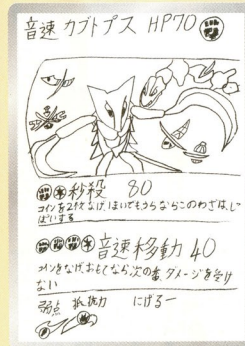 音速 カブトプス HP70
秒殺 80
コインを2枚なげ、1まいでもうらならこのわざは、しっぱいする
音速移動 40
コインをなげ、おもてなら次の番、ダメージを受けない
弱点 抵抗力 にげるー